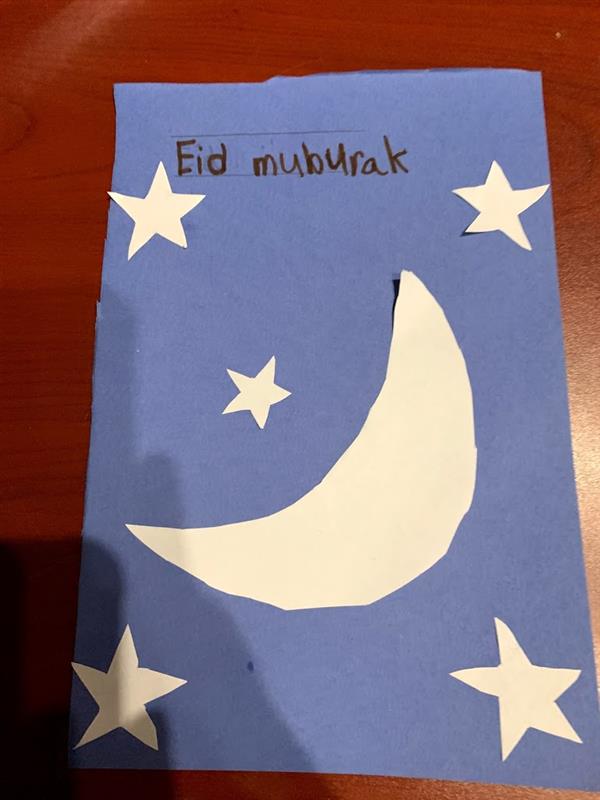 Eid muburak